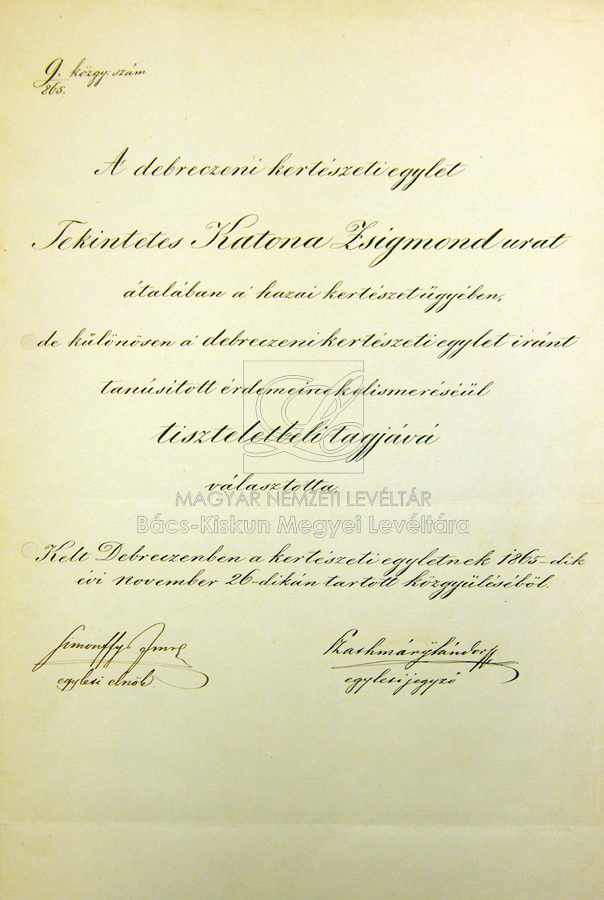 9. közgy: szám
865.
A debreczeni kertészeti egylet
Tekintetes Katona Zsigmond urat
átalában a' hazai kertészet ügyében,
de különösen a' debreczeni kertészeti egylet iránt
tanúsitott érdemeinek elismeréséül
tiszteletbeli tagjává
választotta.
MAGYAR NEMZETI LEVÉLTÁR
Bács-Kiskun Megyei Levéltára
Kelt Debreczenben a kertészeti egyletnek 1865-dik
évi november 26-dikán tartott közgyüléséböl.
Simonffy Imre
egyleti elnök.
Szathmáry Sándor
egyleti jegyző